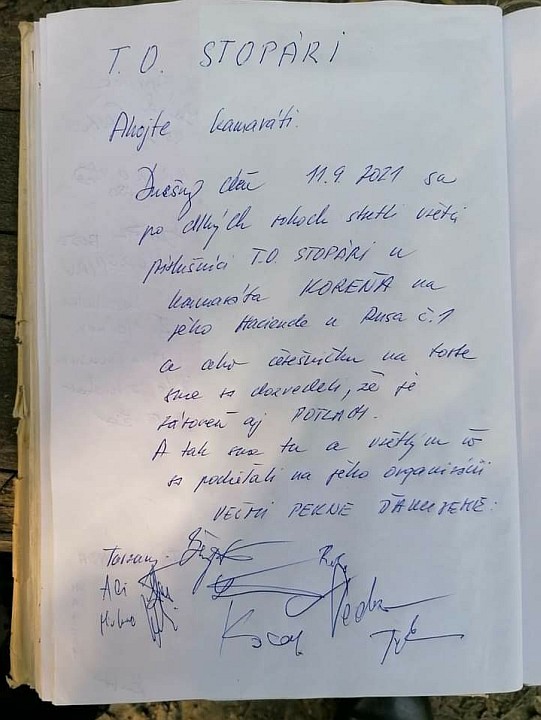 T.O. STOPÁRI
Ahojte kamaráti.
Dnešný deň 11.9.2021 sa
po dlhých rokoch stretli všetci
príslušníci T.O. STOPÁRI u
kamaráta KOREŇA na
jeho Haciende u Rusa č.1
a ako čerešničku na torte
sme sa dozvedeli, že je
zároveň aj POTLACH.
A tak sme tu a všetkým čo
sa podieľali na jeho organizácii
VEĽMI PEKNE ĎAKUJEME.
Tarzan
Aci